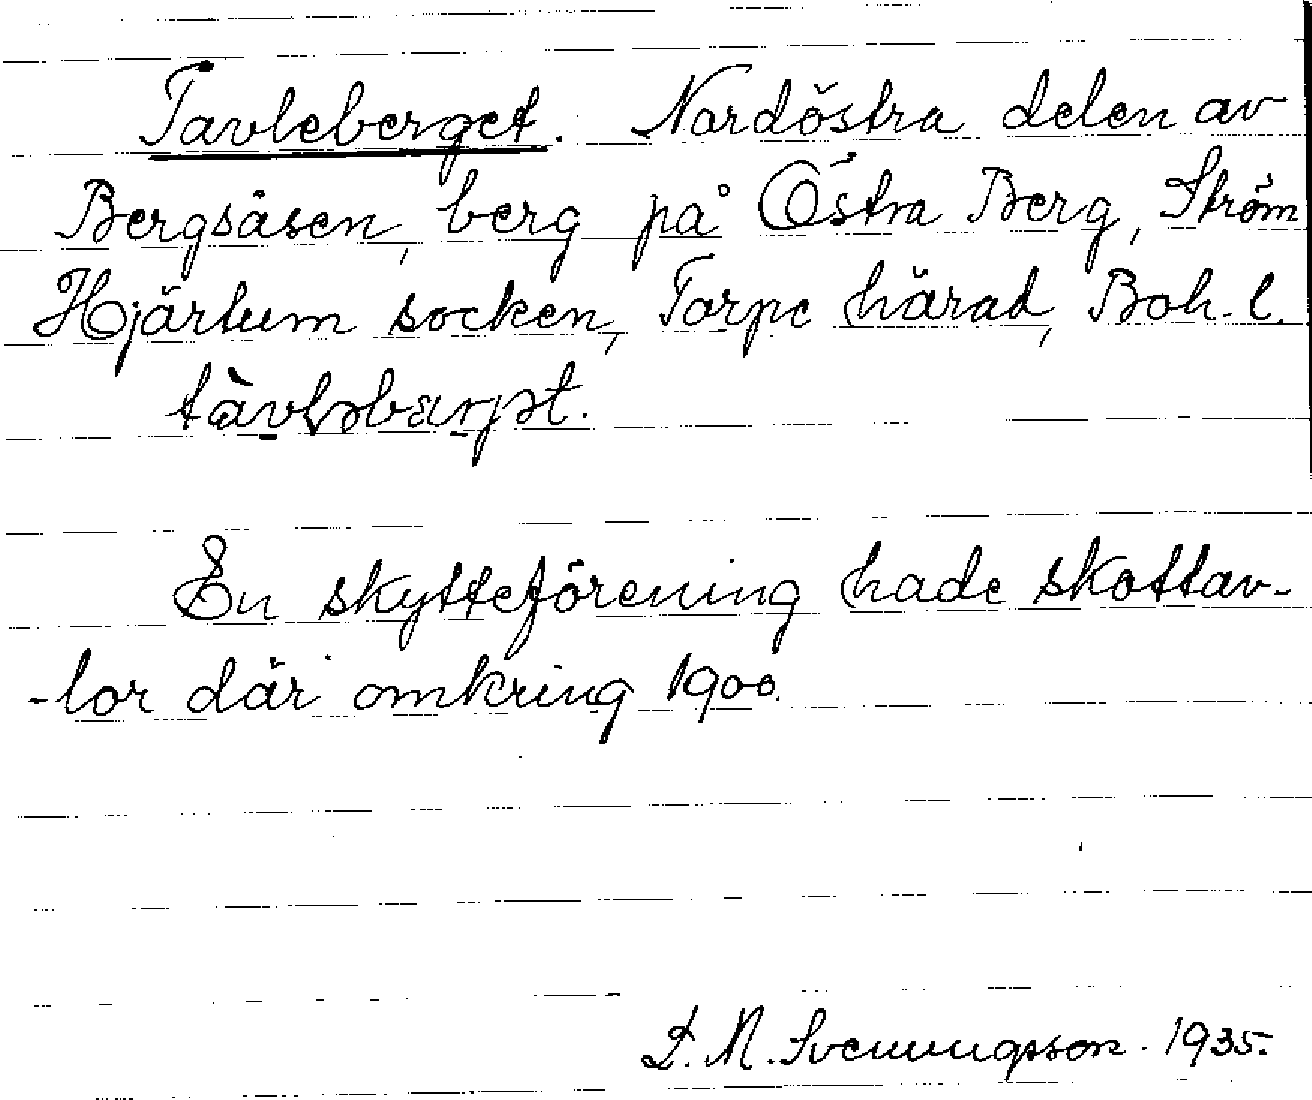 Tavleberget. Nordöstra delen av
Bergsåsen, berg på Östra Berg, Ström
Hjärtum socken, Torpe härad, Boh. l.
tàvləbærjət.
En skytteförening hade skottav-
-lor där omkring 1900.
D. M. Svenungsson. 1935.